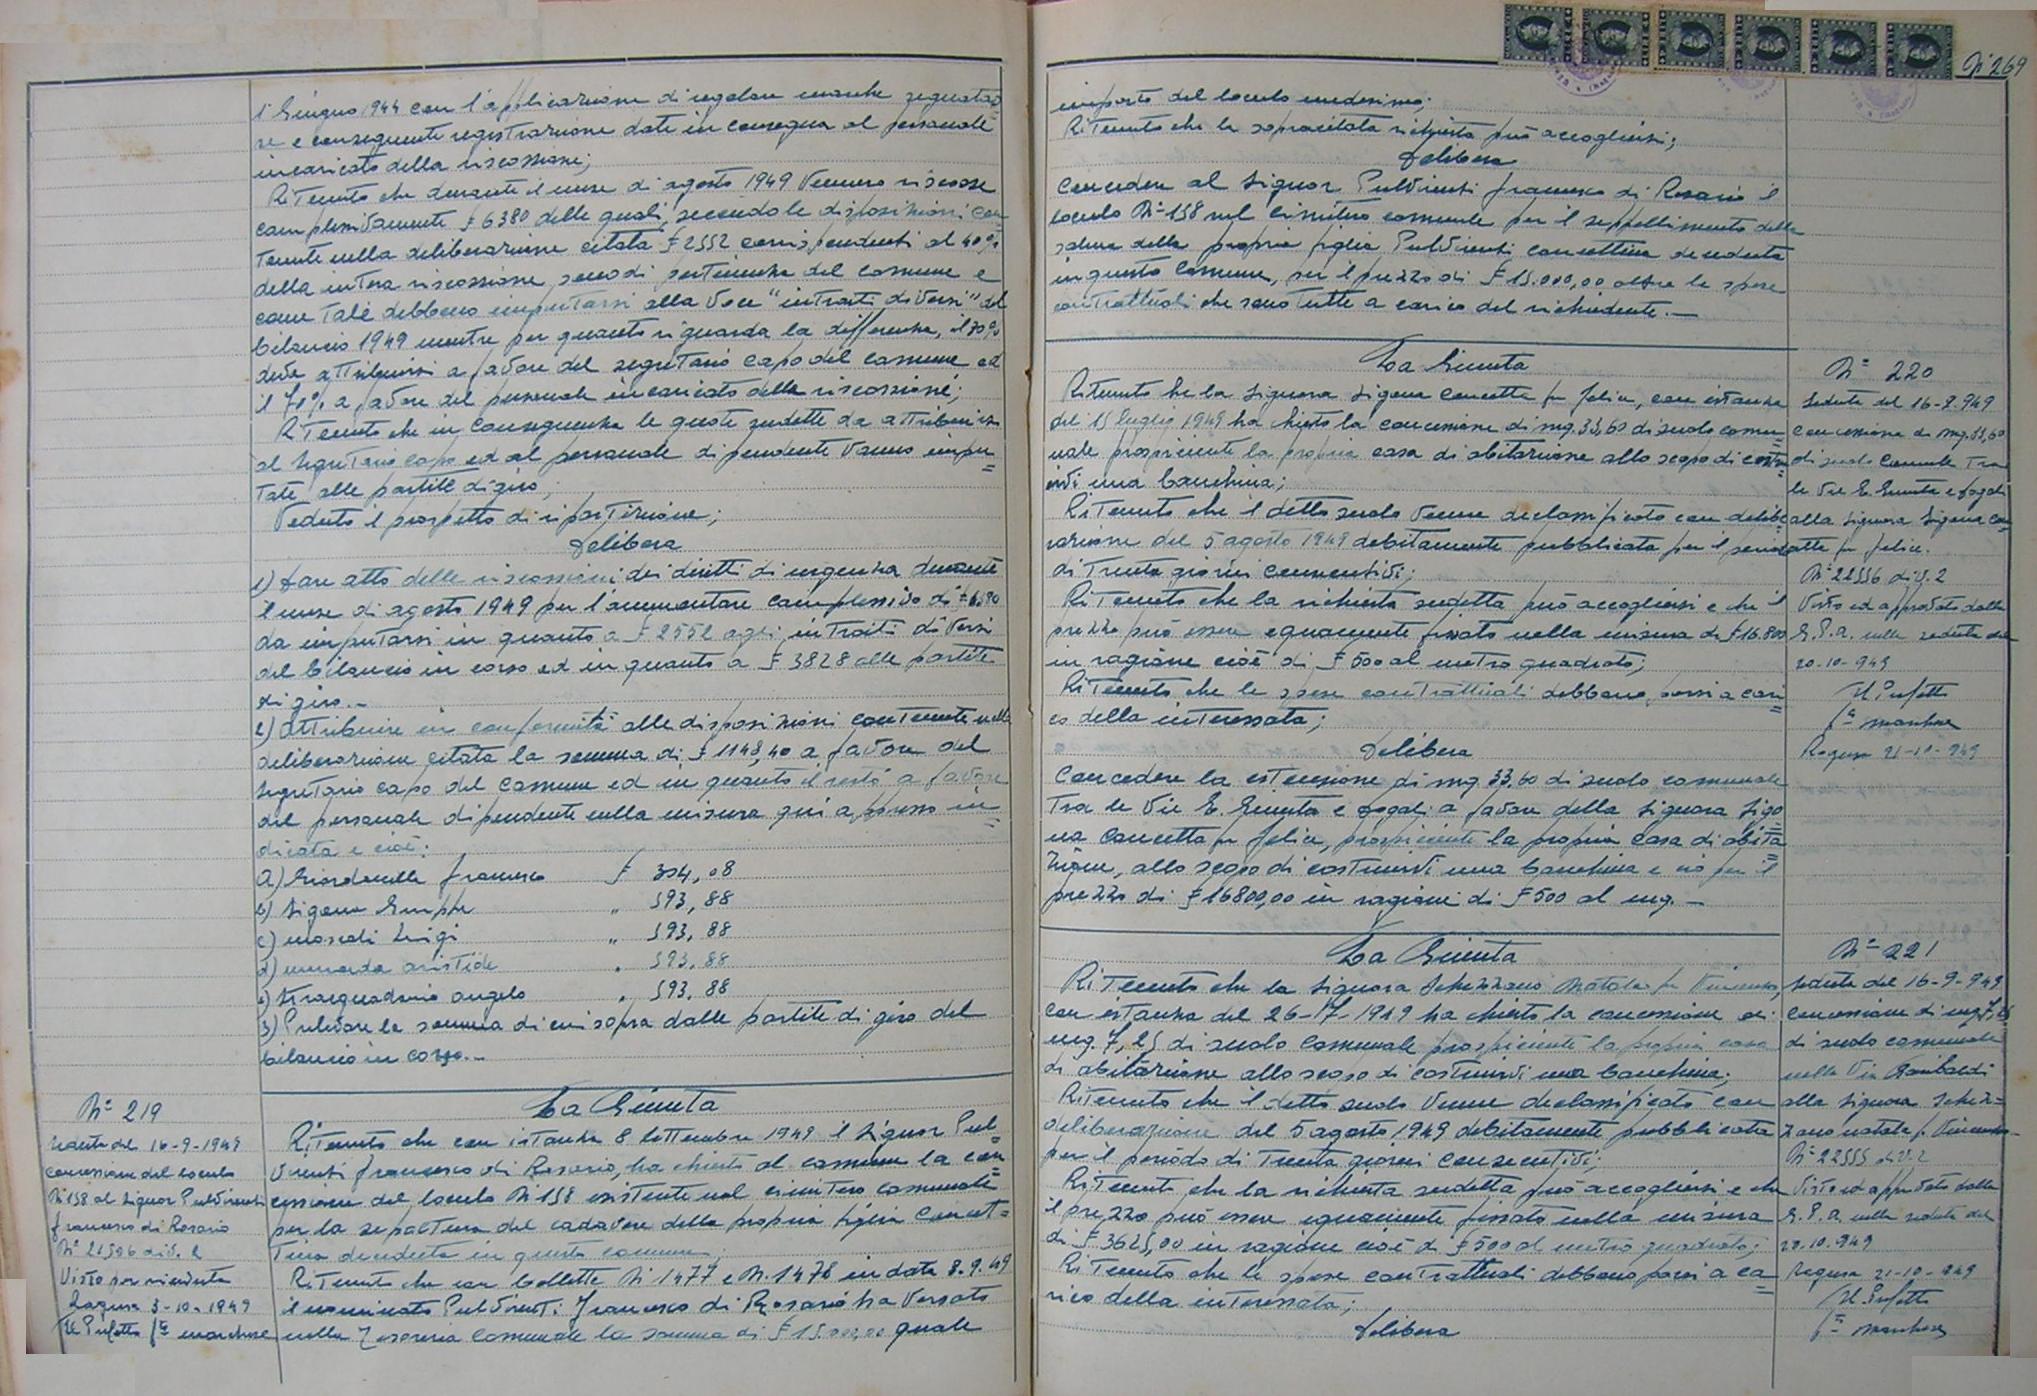 1° Giugno 1944 con l'applicazione di regolari marche segnatas=
se e conseguente registrazione date in consegna al personale
incaricato della riscossione;
Ritenuto che durante il mese di agosto 1949 vennero riscosse
complessivamente £ 6380 delle quali, secondo le disposizioni con=
tenute nella deliberazione citata £ 2552 corrispondenti al 40%
della intera riscossione, sono di pertinenza del comune e
come tale debbono imputarsi alla voce "introiti diversi" del
bilancio 1949 mentre per quanto riguarda la differenza, il 30%
deve attribuirsi a favore del segretario capo del comune ed
il 70% a favore del personale incaricato della riscossione;
Ritenuto che in conseguenza le quote suddette da attribuirsi
al segretario capo ed al personale dipendente vanno impu=
tate alle partite di giro;
Veduto il prospetto di ripartizione;
Delibera
1) Dare atto delle riscossioni dei diritti di urgenza durante
il mese di agosto 1949 per l'ammontare complessivo di £ 6380
da imputarsi in quanto a £ 2552 agli introiti diversi
del bilancio in corso ed in quanto a £ 3828 alle partite
di giro.-
2) Attribuire in conformità alle disposizioni contenute nella
deliberazione citata la somma di £ 1148,40 a favore del
segretario capo del comune ed in quanto il resto a favore
del personale dipendente nella misura qui appresso in=
dicata e cioè:
a) Giordanella Francesco £ 304,08
b) Sigona Giuseppe " 593,88
c) Moscati Luigi " 593,88
d) aristide " 593,88
e) Tracquadaino Angelo " 593,88
3) Prelevare la somma di cui sopra dalle partite di giro del
bilancio in corso.-
N° 219
Seduta del 16-9-1949
Concessione del loculo
N 158 al Signor Pulvirenti
Francesco di Rosario
N° 21506 div. 2
Visto per rinvenuta
Ragusa 3-10-1949
Il Prefetto
La Giunta
Ritenuto che con istanza 8 Settembre 1949 il Signor Pul=
virenti Francesco di Rosario, ha chiesto al comune la con=
cessione del loculo N 158 esistente nel cimitero comunale
per la sepoltura del cadavere della propria figlia Concet=
tina deceduta in questo comune;
Ritenuto che con bollette N 1477 e N. 1478 in data 8.9.49
il nominato Pulvirenti Francesco di Rosario ha versato
nella Tesoreria Comunale la somma di £ 15.000,00 quale
N° 269
importo del loculo medesimo;
Ritenuto che la sopracitata richiesta può accogliersi;
Delibera
Concedere al Signor Pulvirenti Francesco di Rosario il
loculo N° 158 nel cimitero comunale per il seppellimento della
salma della propria figlia Pulvirenti Concettina deceduta
in questo Comune, per il prezzo di £ 15.000,00 oltre le spese
contrattuali che sono tutte a carico del richiedente.-
La Giunta
Ritenuto che la Signora Sigona Concetta fu Felice, con istanza
del 15 luglio 1949 ha chiesto la concessione di mq. 33,60 di suolo comu=
nale prospiciente la propria casa di abitazione allo scopo di costru=
irvi una banchina;
Ritenuto che il detto suolo venne declassificato con delibe
razione del 5 agosto 1949 debitamente pubblicata per il periodo
di trenta giorni consecutivi;
Ritenuto che la richiesta suddetta può accogliersi e che il
prezzo può essere equamente fissato nella misura di £ 16.800
in ragione cioè di £ 500 al metro quadrato;
Ritenuto che le spese contrattuali debbono porsi a cari=
co della interessata;
Delibera
Concedere la estensione di mq 33,60 di suolo comunale
tra le Vie E. Giunta e Fogali a favore della Signora Sigo=
na Concetta fu Felice, prospiciente la propria casa di abita=
zione, allo scopo di costruirvi una banchina e ciò per il
prezzo di £ 16800,00 in ragione di £ 500 al mq.-
N° 220
Seduta del 16-9-949
Concessione di mq. 33,60
di suolo Comunale tra
le Vie E. Giunta e Fogali
alla Signora Sigona Con=
cetta fu Felice.
N° 22556 div. 2
Visto ed approvato dalla
G.P.A. nella seduta del
20-10-949
Il Prefetto
Ragusa 21-10-949
La Giunta
Ritenuto che la Signora Schizzano Natala fu Vincenzo,
con istanza del 26-7-1949 ha chiesto la concessione di
mq. 7,25 di suolo comunale prospiciente la propria casa
di abitazione allo scopo di costruirvi una banchina;
Ritenuto che il detto suolo venne declassificato con
deliberazione del 5 agosto 1949 debitamente pubblicata
per il periodo di trenta giorni consecutivi;
Ritenuto che la richiesta suddetta può accogliersi e che
il prezzo può essere equamente fissato nella misura
di £ 3625,00 in ragione cioè di £ 500 al metro quadrato;
Ritenuto che le spese contrattuali debbono porsi a ca=
rico della interessata;
Delibera
N° 221
Seduta del 16-9-949
Concessione di mq. 7,25
di suolo comunale
nella Via Garibaldi
alla Signora Schiz=
zano Natala fu Vincenzo.
N° 22555 div. 2
Visto ed approvato dalla
G.P.A. nella seduta del
20.10.949
Ragusa 21-10-949
Il Prefetto